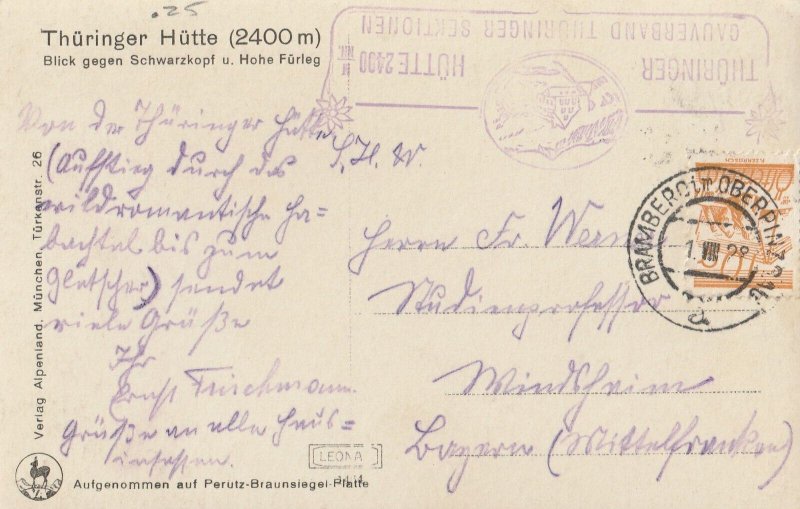 .25
Thüringer Hütte (2400 m)
Blick gegen Schwarzkopf u. Hohe Fürleg
THÜRINGER HÜTTE 2400 M
GAUVERBAND THÜRINGER SEKTIONEN
Von der Thüringer Hütte
(Aufstieg durch das
wildromantische Ha=
bachtal bis zum
Gletscher) sendet
viele Grüße
Ihr
Ernst Frischmann.
Grüße an alle Haus=
insassen.
S. H. W.
Herrn Fr. Werner
Studienprofessor
Windsheim
Bayern (Mittelfranken)
BRAMBERG im OBERPINZGAU
1. VIII 28
Verlag Alpenland, München, Türkenstr. 26
LEONA
Aufgenommen auf Perutz-Braunsiegel-Platte